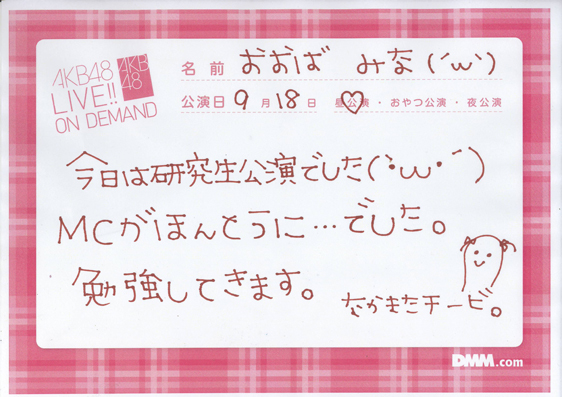 AKB48
LIVE!!
ON DEMAND
AKB
48
名前 おおば みな(´ω`)
公演日 9月18日 昼公演・おやつ公演・夜公演
今日は研究生公演でした(`・ω・´)
MCがほんとうに…でした。
勉強してきます。
なかまたチービ。
DMM.com